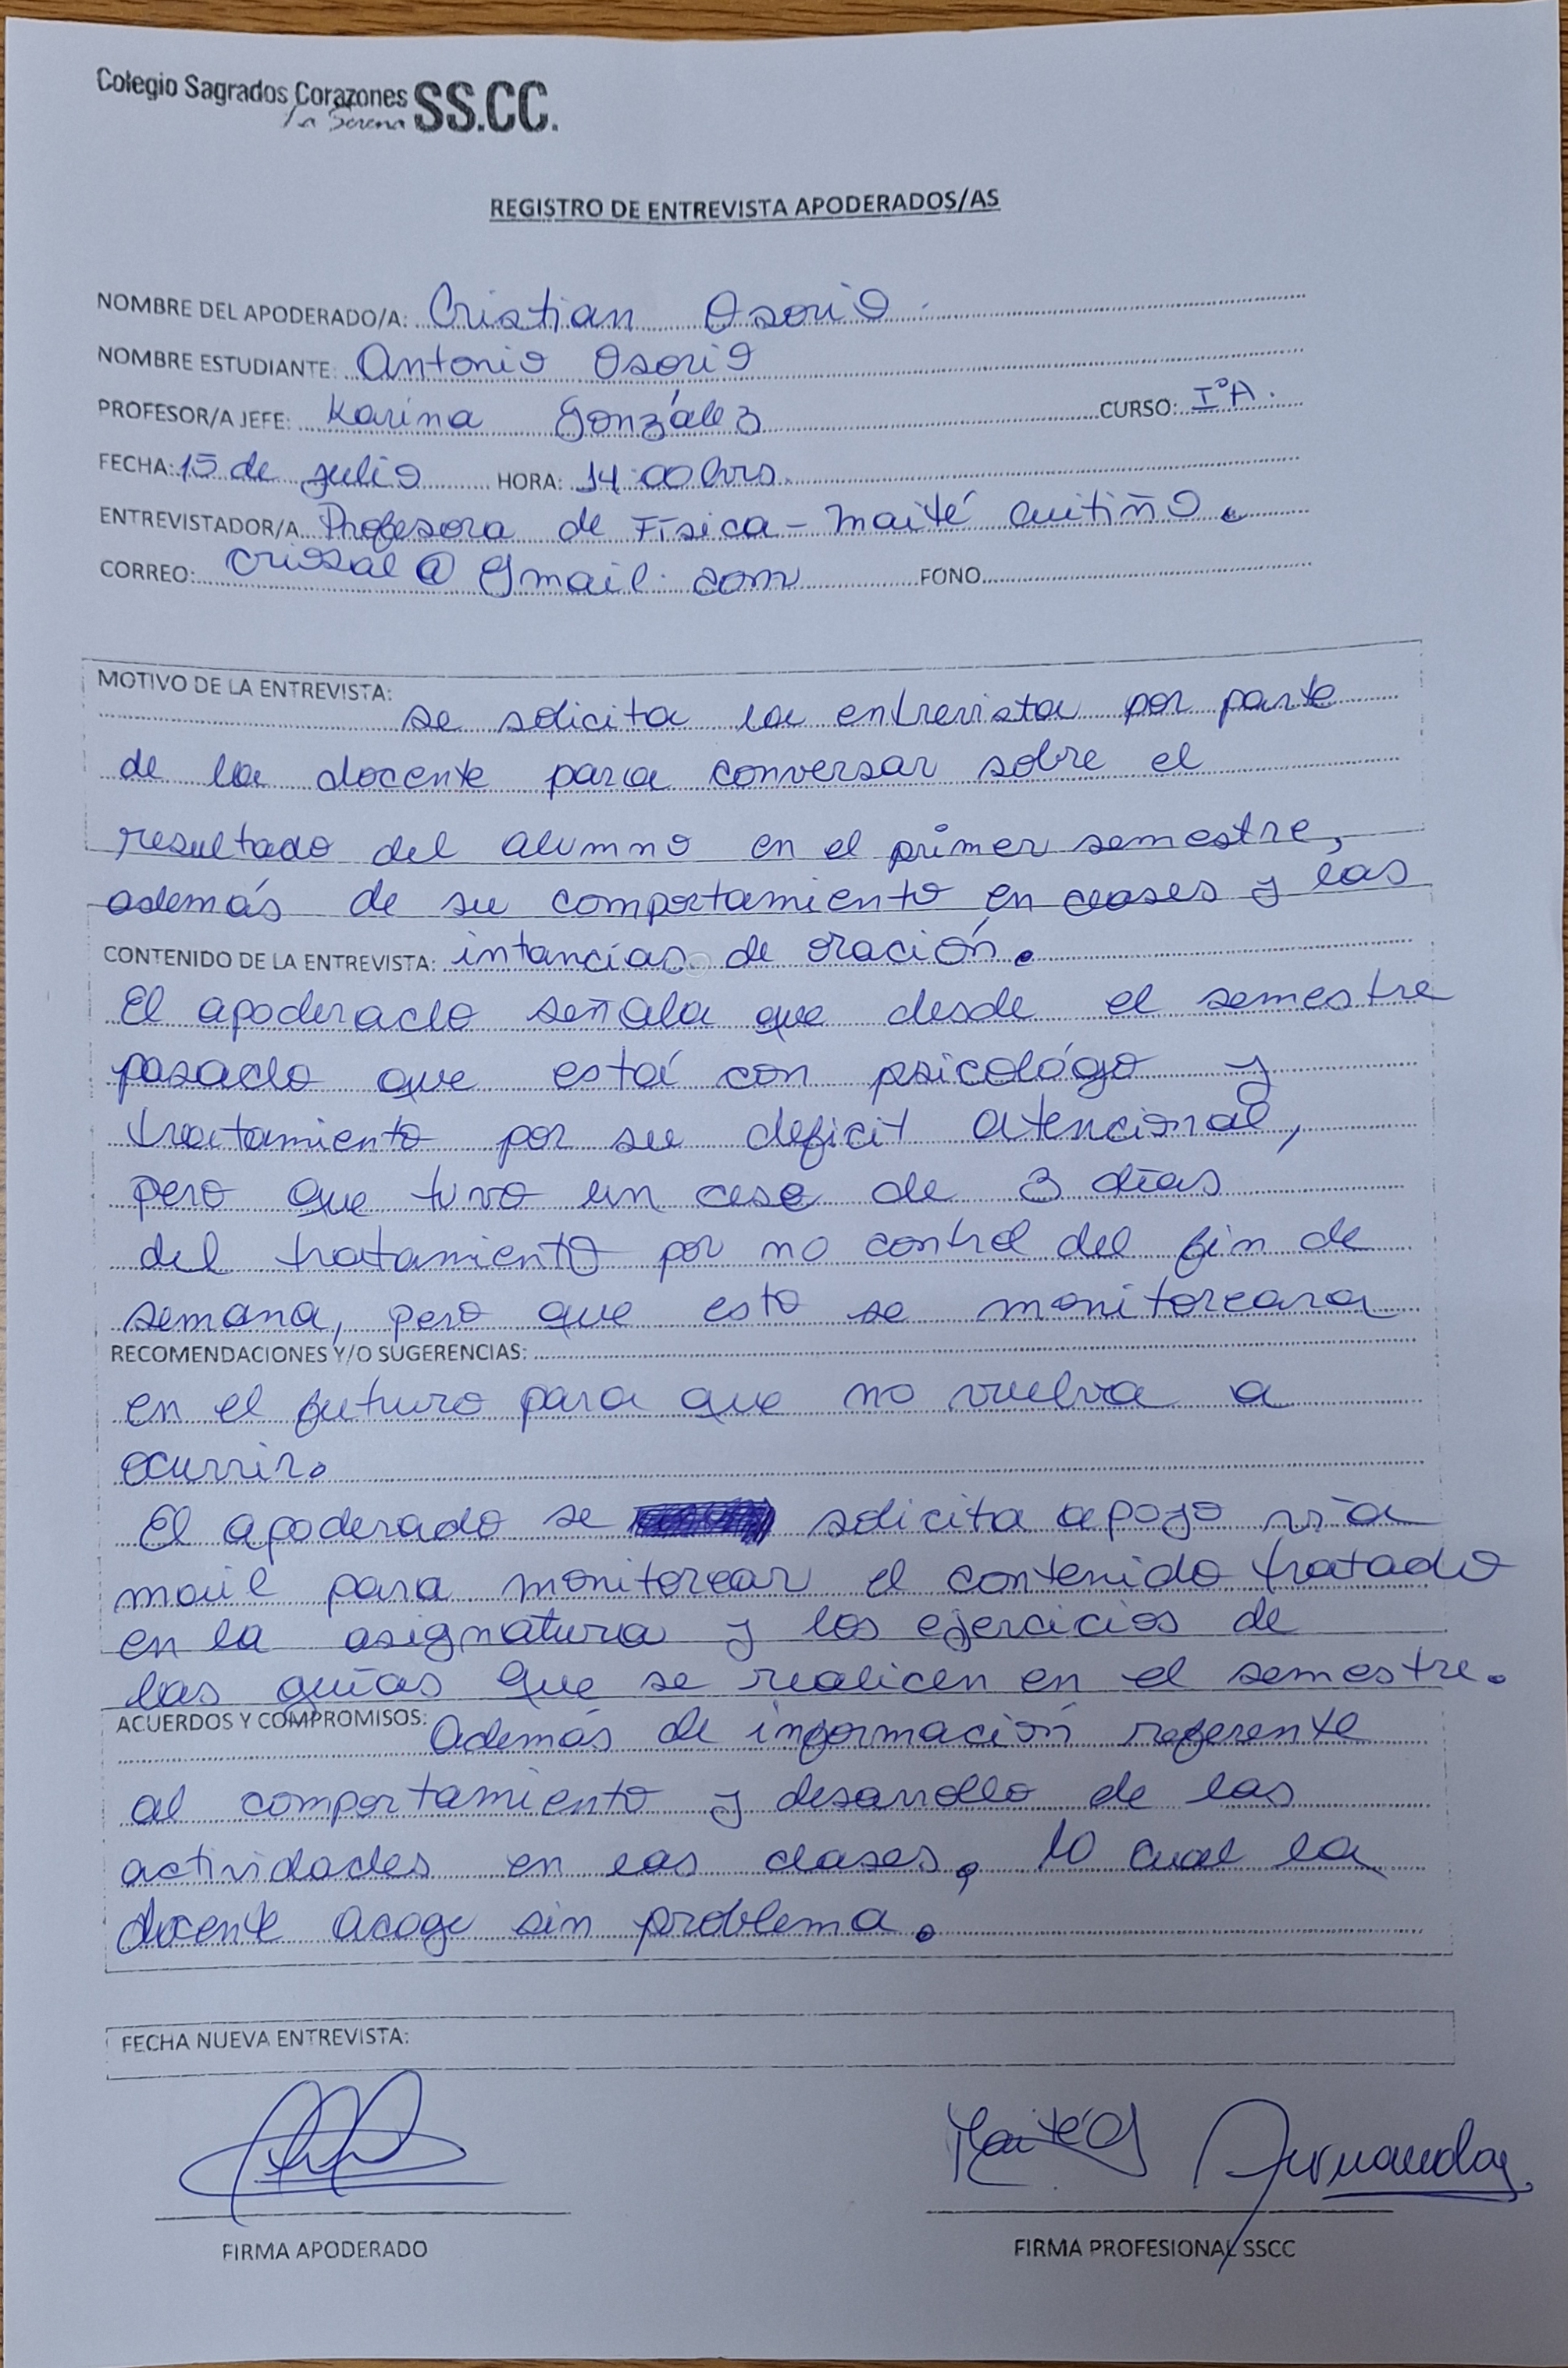 Colegio Sagrados Corazones SS.CC.
La Serena
REGISTRO DE ENTREVISTA APODERADOS/AS
NOMBRE DEL APODERADO/A: Cristian Osorio
NOMBRE ESTUDIANTE: Antonio Osorio
PROFESOR/A JEFE: Karina González CURSO: I°A.
FECHA: 15 de julio HORA: 14:00 hrs.
ENTREVISTADOR/A Profesora de Física - Maité Cuitiño.
CORREO: @gmail.com FONO
MOTIVO DE LA ENTREVISTA:
se solicita la entrevista por parte
de la docente para conversar sobre el
resultado del alumno en el primer semestre,
además de su comportamiento en clases y las
CONTENIDO DE LA ENTREVISTA: intancias de oración.
El apoderado señala que desde el semestre
pasado que está con psicológo y
tratamiento por su deficit atencional,
pero que tuvo un cese de 3 días
del tratamiento por no control del fin de
semana, pero que esto se monitoreara
RECOMENDACIONES Y/O SUGERENCIAS:
en el futuro para que no vuelva a
ocurrir.
El apoderado se solicita apoyo vía
mail para monitorear el contenido tratado
en la asignatura y los ejercicios de
las guías que se realicen en el semestre.
ACUERDOS Y COMPROMISOS: Además de información referente
al comportamiento y desarrollo de las
actividades en las clases, lo cual la
docente acoge sin problema.
FECHA NUEVA ENTREVISTA:
Maité C Fernanda
FIRMA APODERADO FIRMA PROFESIONAL SSCC